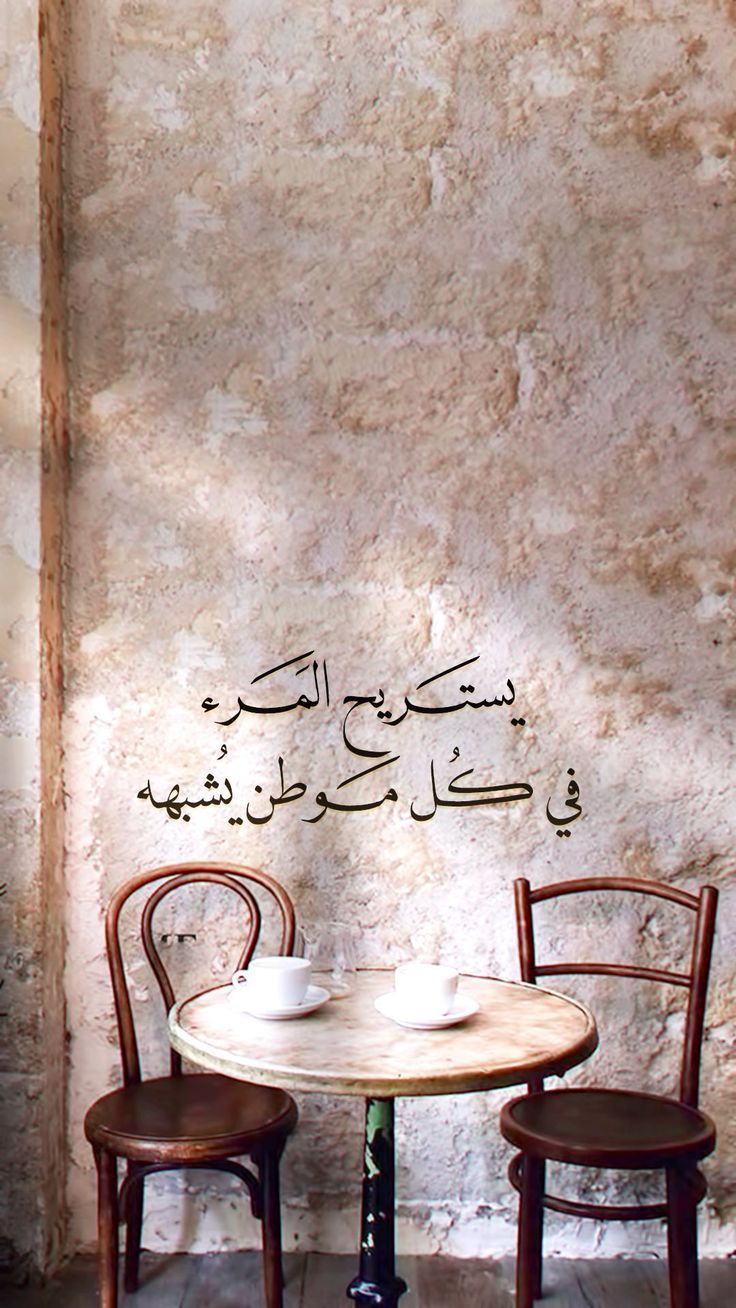 يستـَـريح المَـَـرء
في كُل مـَـوطن يُشبهه